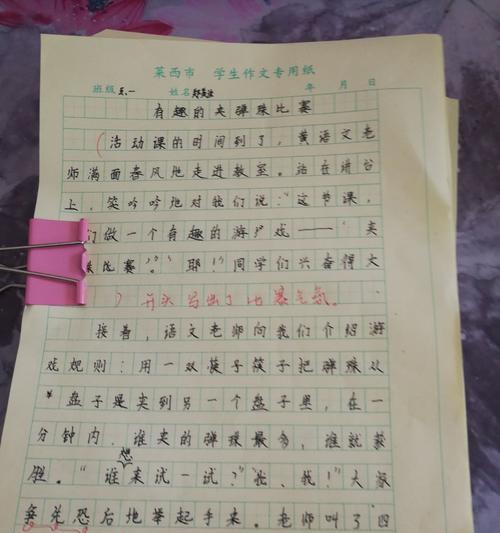 莱西市 学生作文专用纸
班级 五.一 姓名 年 月 日
有趣的夹弹珠比赛
活动课的时间到了，黄语文老
师满面春风地走进教室。站在讲台
上，笑吟吟地对我们说：“这节课，
们做一个有趣的游戏——“夹
珠比赛”。”耶！同学们兴奋得大
开头写出了比赛气氛。
接着，语文老师向我们介绍游
戏规则：用一双筷子筷子把弹珠从
盘子是夹到另一个盘子里，在一
分钟内，谁夹的弹珠最多，谁就获
胜。“谁想来试一试？”“我、我！”大家
争先恐后地举起手来。老师叫了四